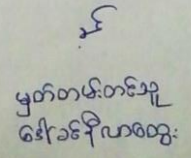 မှတ်တမ်းတင်သူ
ဒေါ်ခင်နီလာထွေး